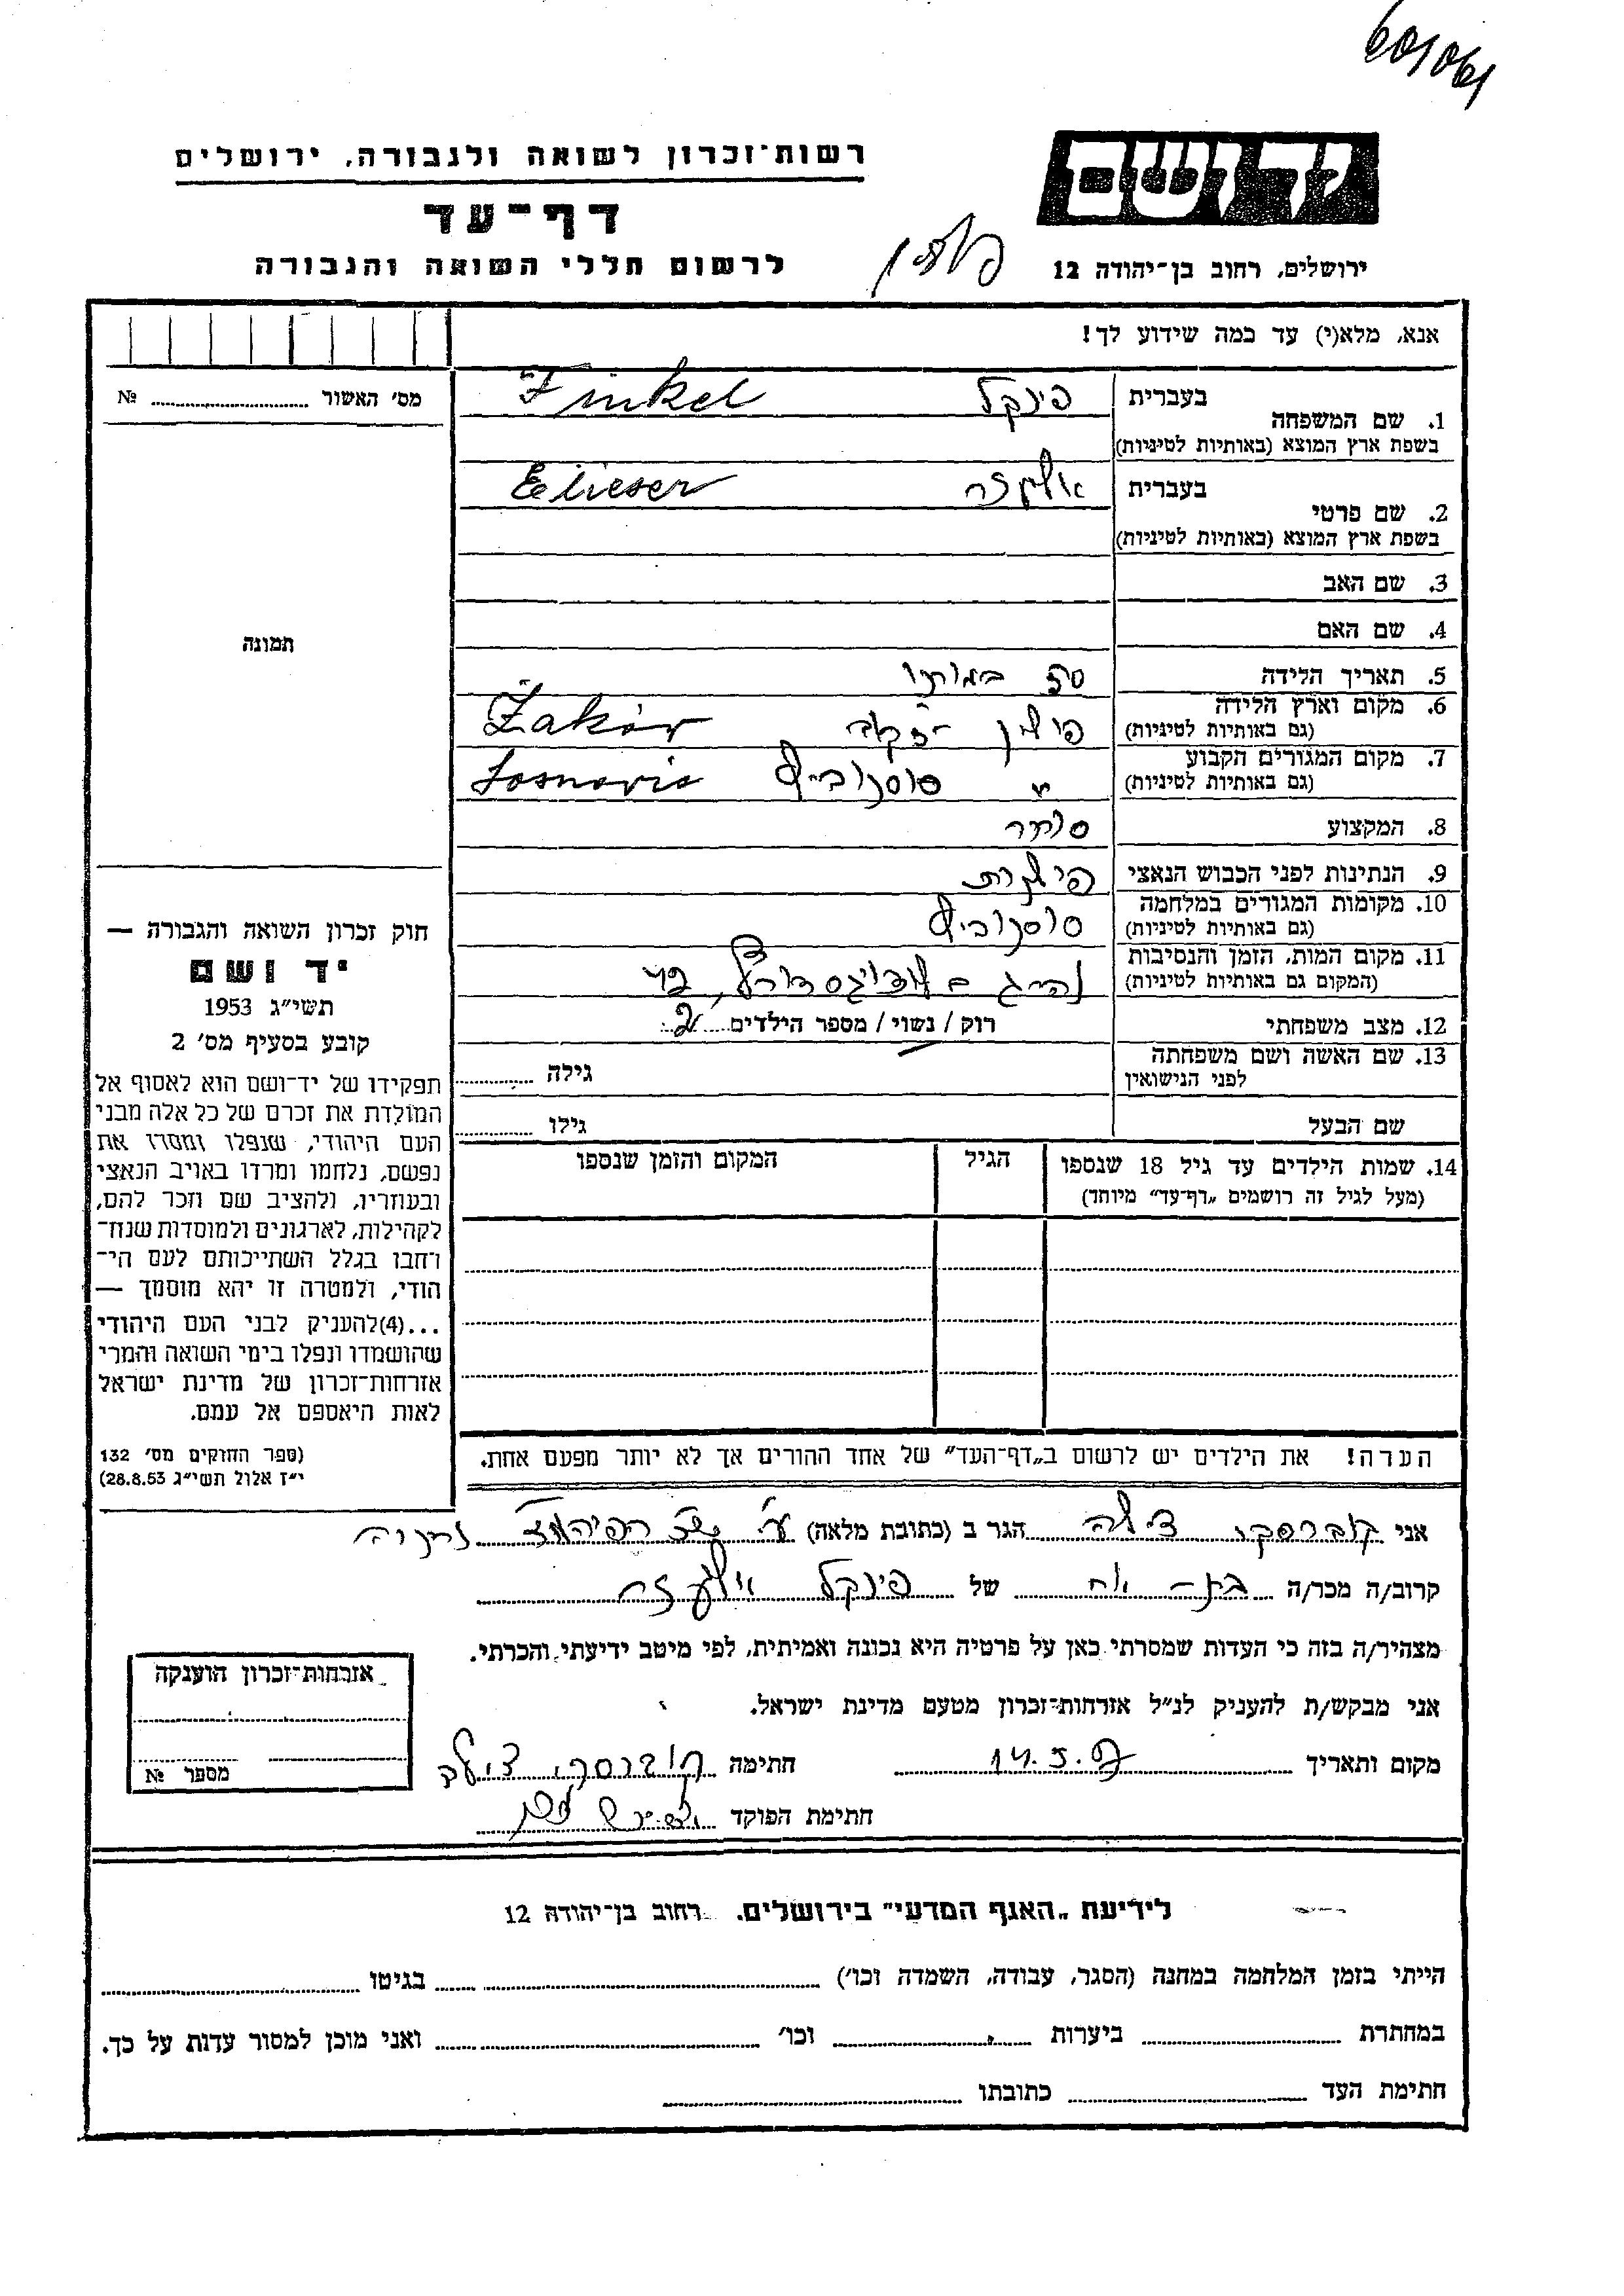 601061
רשות-זכרון לשואה ולגבורה, ירושלים
יד ושם
דף-עד
לרשום חללי השואה והגבורה
פולין
ירושלים, רחוב בן-יהודה 12
אנא, מלא(י) עד כמה שידוע לך!
מס׳ האשור № ..........
1. שם המשפחה בעברית פינקל Finkel
בשפת ארץ המוצא (באותיות לטיניות)
2. שם פרטי בעברית אליעזר Elieser
בשפת ארץ המוצא (באותיות לטיניות)
3. שם האב
4. שם האם
תמונה
5. תאריך הלידה 50 במותו
6. מקום וארץ הלידה פולין Żakór
(גם באותיות לטיניות)
7. מקום המגורים הקבוע " סוסנוביץ Sosnovic
(גם באותיות לטיניות)
8. המקצוע סוחר
9. הנתינות לפני הכבוש הנאצי פולנית
10. מקומות המגורים במלחמה סוסנוביץ
(גם באותיות לטיניות)
11. מקום המות, הזמן והנסיבות נהרג ב
(המקום גם באותיות לטיניות)
12. מצב משפחתי רוק / נשוי / מספר הילדים 2
13. שם האשה ושם משפחתה גילה ..........
לפני הנישואין
שם הבעל גילו ..........
14. שמות הילדים עד גיל 18 שנספו הגיל המקום והזמן שנספו
(מעל לגיל זה רושמים „דף-עד״ מיוחד)
הערה! את הילדים יש לרשום ב„דף-העד״ של אחד ההורים אך לא יותר מפעם אחת.
חוק זכרון השואה והגבורה —
יד ושם
תשי״ג 1953
קובע בסעיף מס׳ 2
תפקידו של יד-ושם הוא לאסוף אל
המולדת את זכרם של כל אלה מבני
העם היהודי, שנפלו ומסרו את
נפשם, נלחמו ומרדו באויב הנאצי
ובעוזריו, ולהציב שם וזכר להם,
לקהילות, לארגונים ולמוסדות שנח-
רחבו בגלל השתייכותם לעם הי-
הודי, ולמטרה זו יהא מוסמך —
...(4)להעניק לבני העם היהודי
שהושמדו ונפלו בימי השואה והמרי
אזרחות-זכרון של מדינת ישראל
לאות היאספם אל עמם.
(ספר החוקים מס׳ 132
י״ז אלול תשי״ג 28.8.53)
אני קוברסקי צילה הגר ב (כתובת מלאה)
קרוב/ה מכר/ה בת-אח של פינקל אליעזר
מצהיר/ה בזה כי העדות שמסרתי כאן על פרטיה היא נכונה ואמיתית, לפי מיטב ידיעתי והכרתי.
אני מבקש/ת להעניק לנ״ל אזרחות-זכרון מטעם מדינת ישראל.
מקום ותאריך 14.5.57 חתימה קוברסקי צילה
חתימת הפוקד
אזרחות-זכרון הוענקה
מספר №
לידיעת „האגף המדעי״ בירושלים. רחוב בן-יהודה 12
הייתי בזמן המלחמה במחנה (הסגר, עבודה, השמדה וכו׳) .......... בגיטו ..........
במחתרת .......... ביערות .......... וכו׳ .......... ואני מוכן למסור עדות על כך.
חתימת העד .......... כתובתו ..........